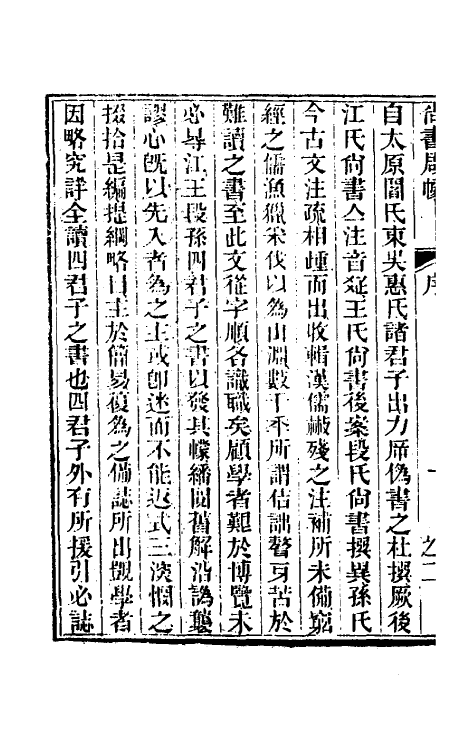 尚書啟幪
序
一
之二
自太原閻氏東吳惠氏諸君子出力斥偽書之杜撰厥後
江氏尚書亼注音疏王氏尚書後案段氏尚書撰異孫氏
今古文注疏相踵而出收輯漢儒散殘之注補所未備窮
經之儒漁獵采伐以為山淵數千年所謂佶詘聱牙苦於
難讀之書至此文從字順各識職矣顧學者艱於博覽未
必㝵江王段孫四君子之書以發其幪繙閱舊解沿譌襲
謬心旣以先入者為之主或卽迷而不能返式三深憫之
掇拾是編提綱略目主於簡易復為之備誌所出覬學者
因略究詳全讀四君子之書也四君子外有所援引必誌